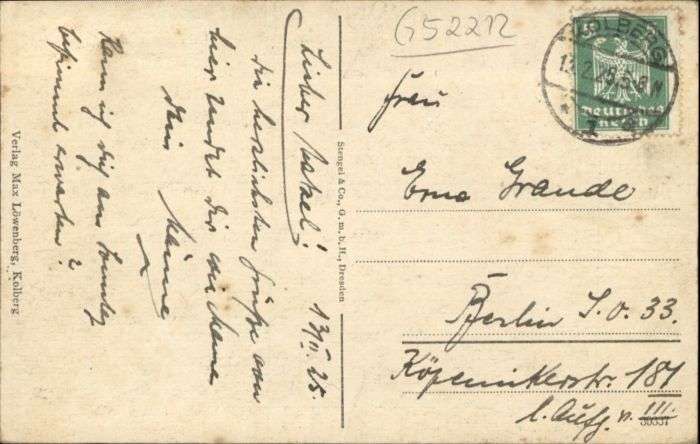 G52212
KOLBERG
13.2.25.
Deutsches Reich
Lieber Mattel! 13/II. 25.
die herzlichsten Grüße von
hier sendet dir
dein
Kann ich dich am Sonntag
bestimmt erwarten?
Verlag Max Löwenberg, Kolberg
Stengel & Co., G. m. b. H., Dresden
Frau
Erna Grande
Berlin S.O. 33.
Köpenickerstr. 181
l. Aufg. n. III.